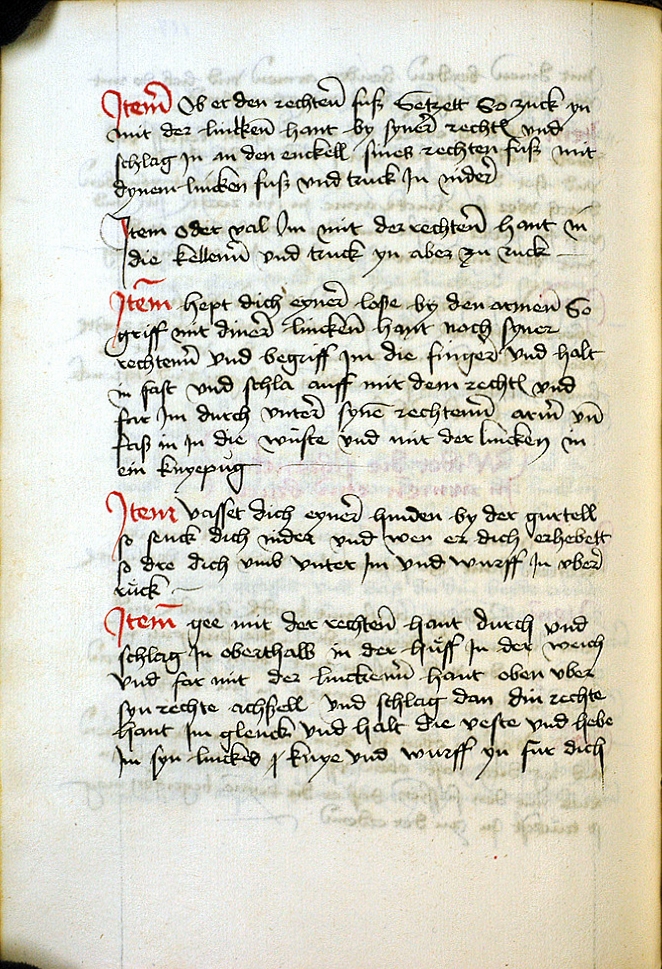 Item Ob er den rechten fuß Setzett So zuck yn
mit der lincken hant by syner rechtn vnd
schlag In an den enckell sines rechten fuß mit
dynen lincken fuß vnd truck In nider
Item oder val Im mit der rechten hant in
die kellenn vnd truck yn aber zu ruck
Item hept dich eyner losse by den armen So
griff mit diner lincken hant noch syner
rechtenn vnd begriff Im die finger vnd halt
in fast vnd schla auff mit dem rechtn vnd
far Im durch vnter syne rechtenn arm vn
faß in In die wüste vnd mit der lincken in
ein knyepüg
Item vasset dich eyner hinden by der gurtell
so senck dich nider vnd wen er dich erhebett
so dre dich vmb vnter Im vnd wurff In vber
rück
Item gee mit der rechten hant durch vnd
schlag In oberthalb in der hüff In der weich
vnd far mit der linckenn hant oben vber
syn rechte achsell vnd schlag dan din rechte
hant Im glenck vnd halt die veste vnd hebe
Im syn linckes knye vnd wurff yn fur dich